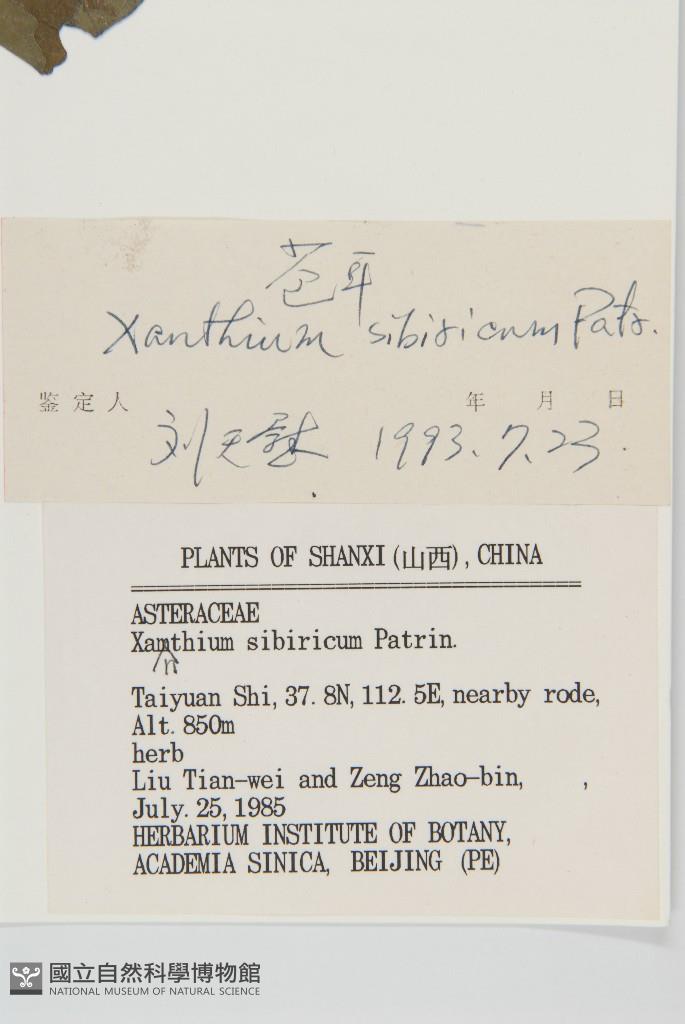 苍耳
Xanthium sibiricum Patr.
鉴定人 年 月 日
刘天慰 1993.7.23.
PLANTS OF SHANXI (山西), CHINA
ASTERACEAE
Xamthium sibiricum Patrin.
n
Taiyuan Shi, 37. 8N, 112. 5E, nearby rode,
Alt. 850m
herb
Liu Tian-wei and Zeng Zhao-bin, ,
July. 25, 1985
HERBARIUM INSTITUTE OF BOTANY,
ACADEMIA SINICA, BEIJING (PE)
國立自然科學博物館
NATIONAL MUSEUM OF NATURAL SCIENCE